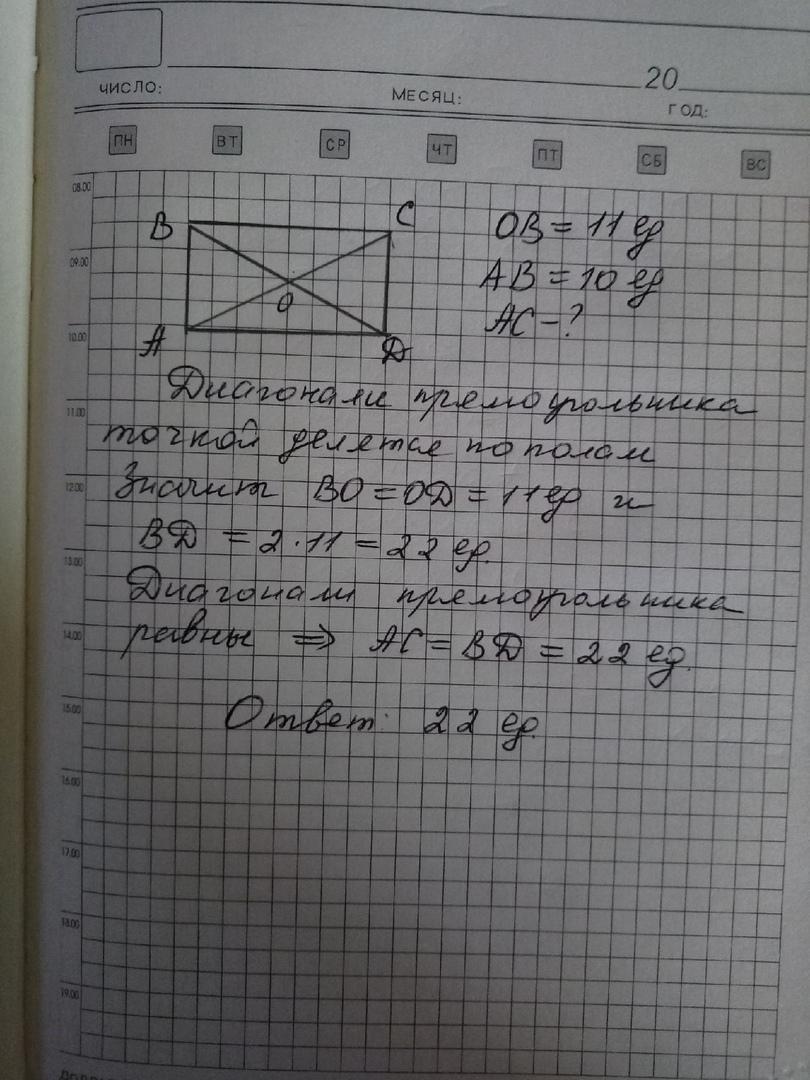 20
ЧИСЛО: МЕСЯЦ: ГОД:
ПН ВТ СР ЧТ ПТ СБ ВС
08.00
B C OB = 11 ед
09.00
AB = 10 ед
O
AC - ?
10.00
A D
Диагонали прямоугольника
11.00
точкой делятся по полам
12.00
Значит BO = OD = 11 ед и
BD = 2 · 11 = 22 ед.
13.00
Диагонали прямоугольника
14.00
равны ⇒ AC = BD = 22 ед.
15.00
Ответ: 22 ед.
16.00
17.00
18.00
19.00